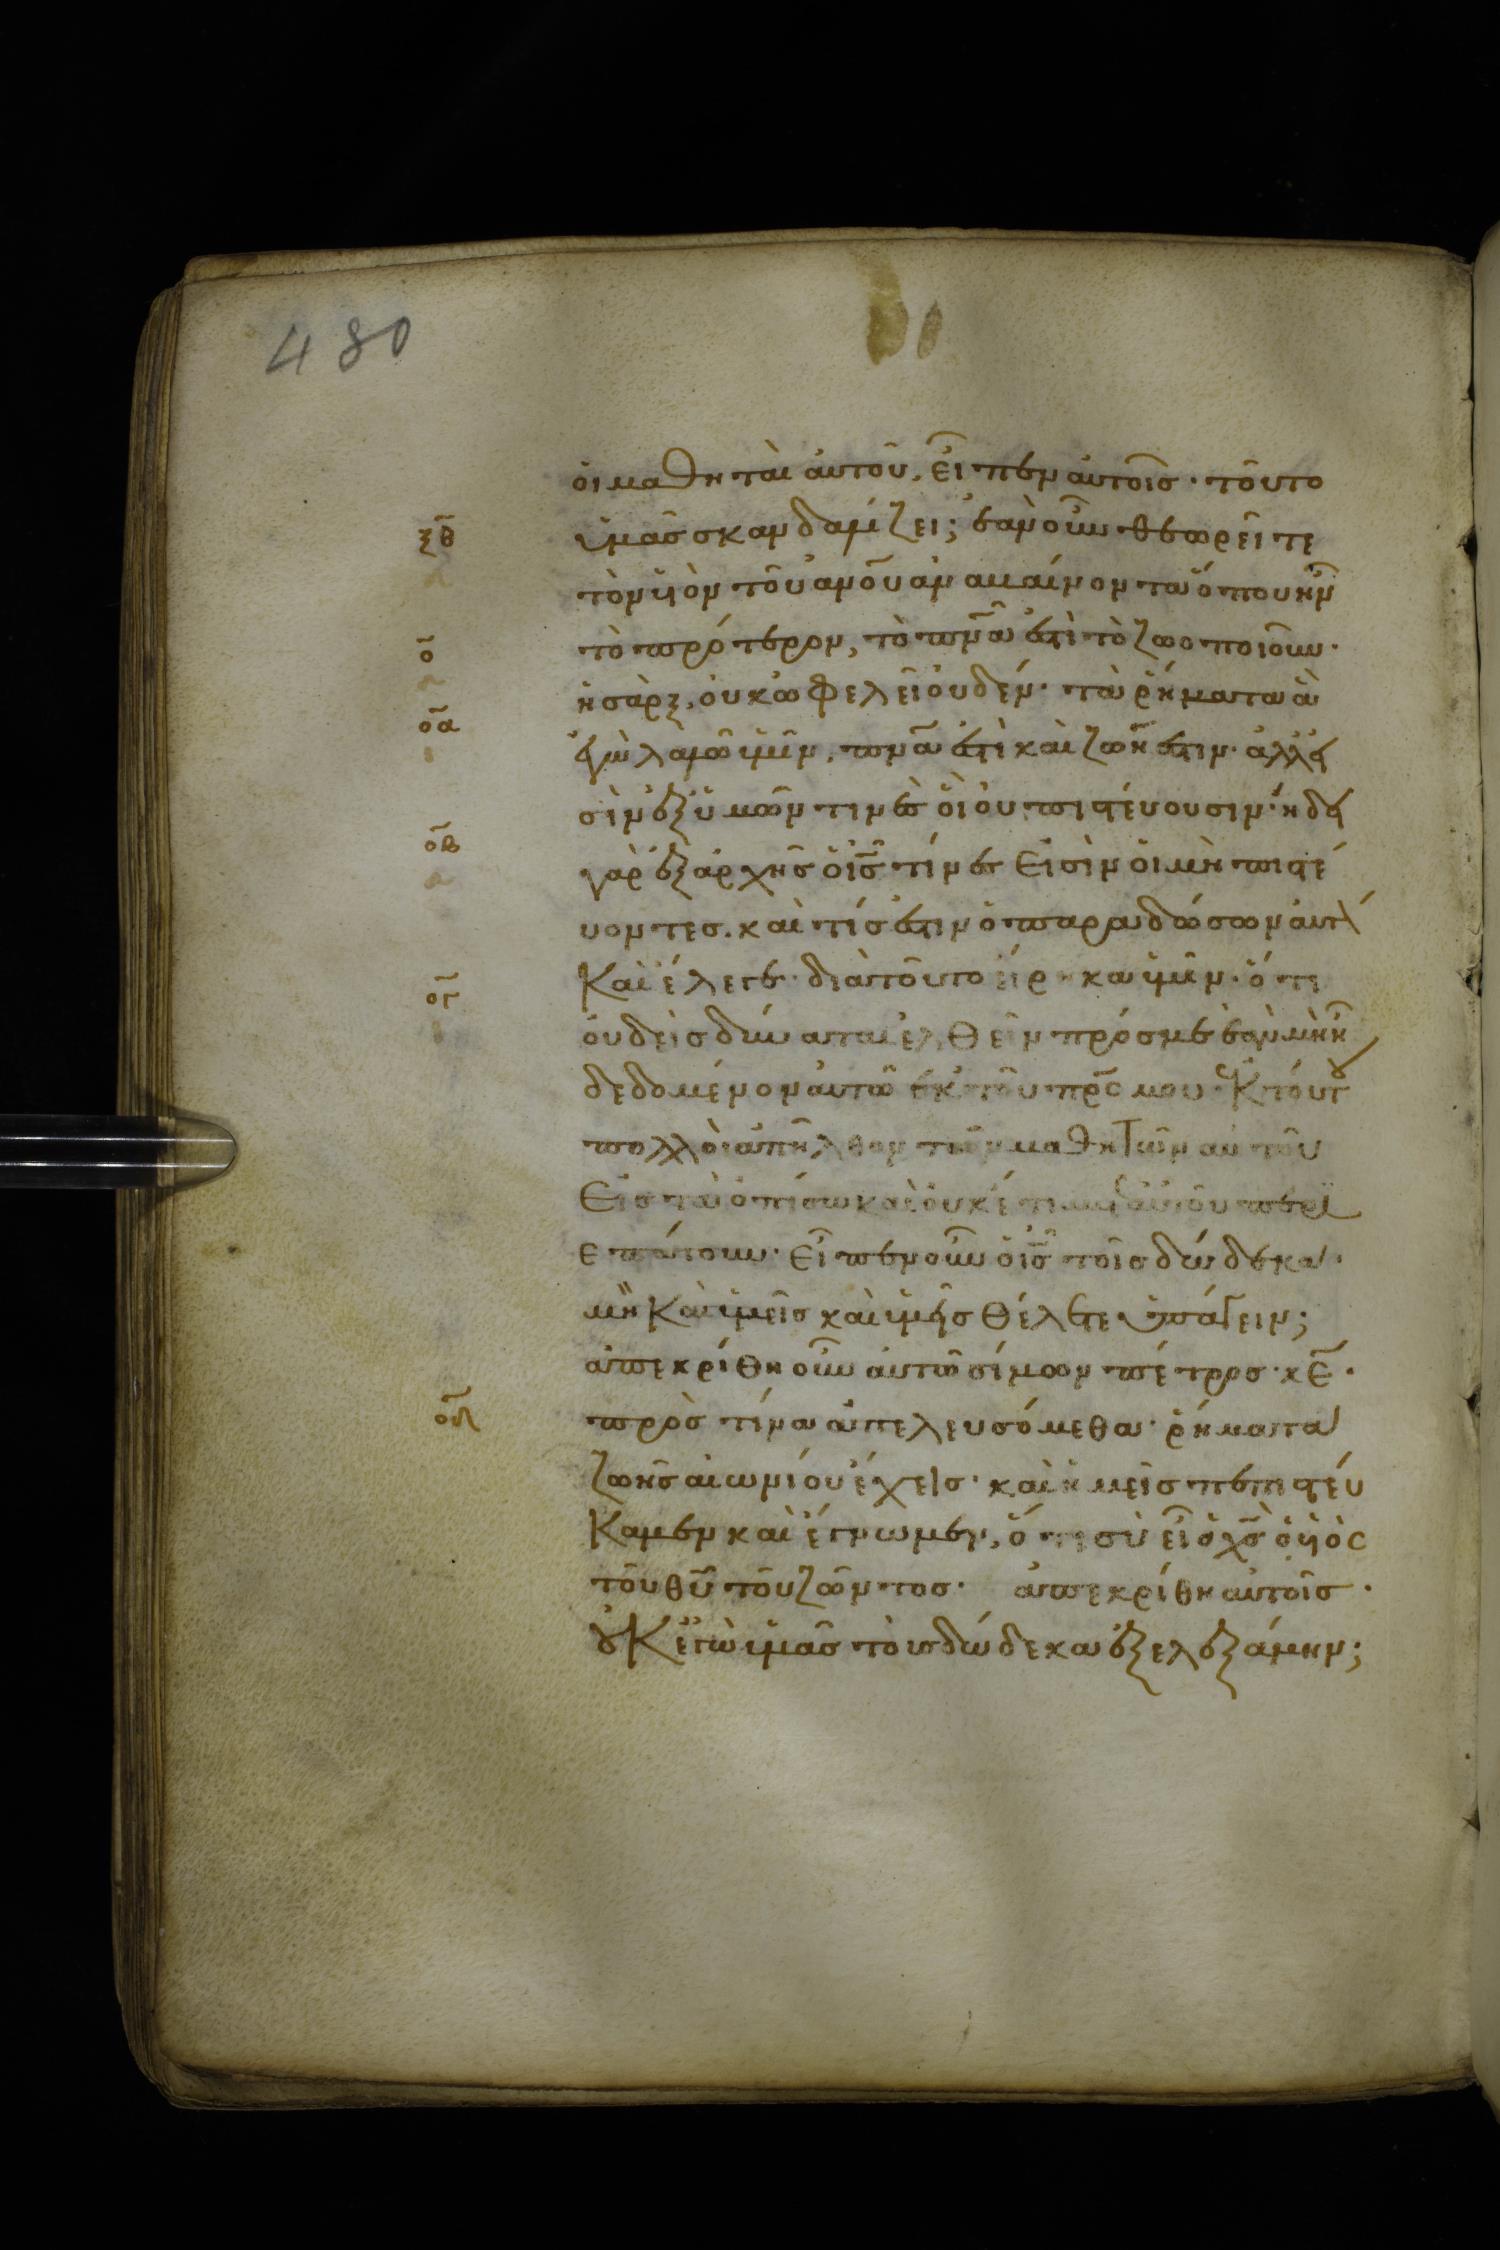 480
οἱ μαθηταὶ ἀυτοῦ, εἶπεν ἀυτοῖς· τοῦτο
ξθ ὑμᾶς σκανδαλίζει; ἐὰν οὖν θεωρεῖτε
τὸν ὑιὸν τοῦ ἀνου ἀναβαίνοντα ὅπου ἦν
ο τὸ πρότερον, τὸ πνα ἐστὶ τὸ ζωοποιοῦν·
ἡ σὰρξ, ὀυκ ὠφελεῖ ὀυδέν· τὰ ῥήματα ἃ
οα ἐγὼ λαλῶ ὑμῖν, πνα ἐστὶ καὶ ζωή ἐστιν· ἀλλ' εἰ
σὶν ἐξ ὑμῶν τινὲς ὃι ὀυ πιστέυουσιν· ἤδει
οβ γὰρ ἐξαρχῆς ὁ ις τίνες εἰσὶν ὁι μὴ πιστέ
υοντες. καὶ τίς ἐστιν ὁ παραδώσων ἀυτ
ογ Καὶ ἔλεγε· διατοῦτο εἴρηκα ὑμῖν· ὅτι
ὀυδεὶς δύναται ἐλθεῖν πρός με ἐὰν μὴ ἦ
δεδομένον ἀυτῶ ἐκ τοῦ πρς μου· Ἐκ τούτου
πολλὸι ἀπῆλθον τῶν μαθητῶν αὐτοῦ
Εἰς τὰ ὀπίσω καὶ ὀυκέτι μετ' ἀυτοῦ περι
επάτουν· Εἶπεν οὖν ὁ ις τοῖς δώδεκα·
μὴ Καὶ ὑμεῖς καὶ ὑμεῖς θέλετε ὑπάγειν;
ἀπεκρίθη οὖν ἀυτῶ σίμων πέτρος· κε·
οδ πρὸς τίνα ἀπελευσόμεθα· ῥήματα
ζωῆς αἰωνίου ἔχεις· καὶ ἡμεῖς πεπιστέυ
Καμεν καὶ ἔγνωμεν, ὅτι σὺ εἶ ὁ χς ὁ ὑιὸς
τοῦ θυ τοῦ ζῶντος· ἀπεκρίθη αὐτοῖς·
ὀυΚ ἐγὼ ὑμᾶς τὸυς δώδεκα ἐξελεξάμην;